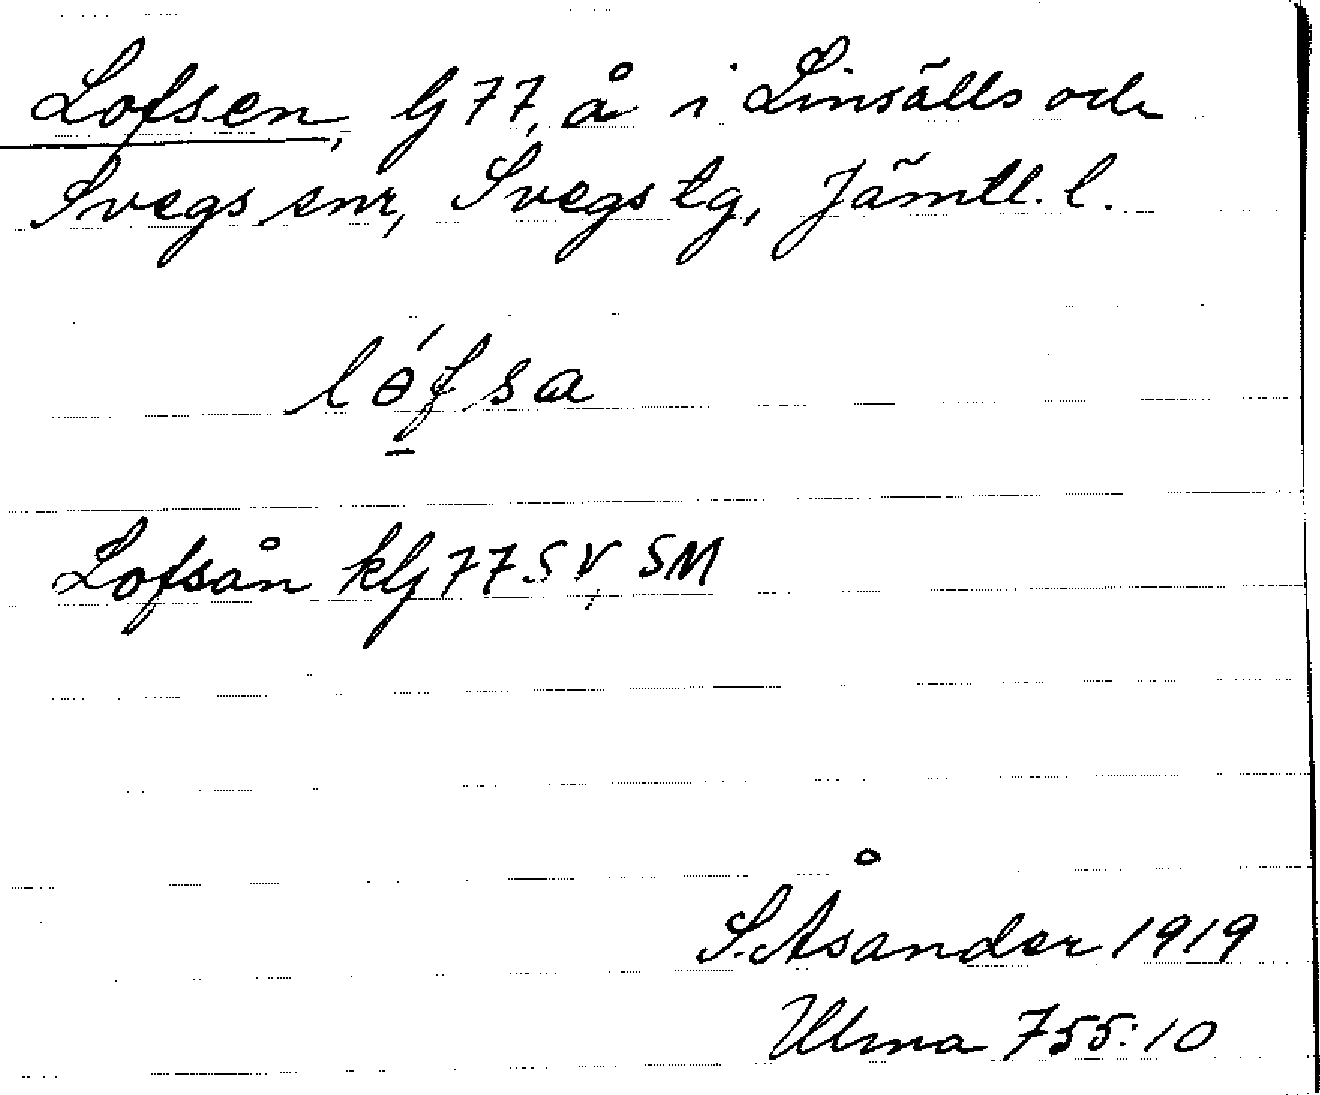 Lofsen, G 77, å i Linsälls och
Svegs snr, Svegs tg, Jämtl. l.
lɵ́fsa
Lofsån kG 77 SV, SM
S. Åsander 1919
Ulma 755:10